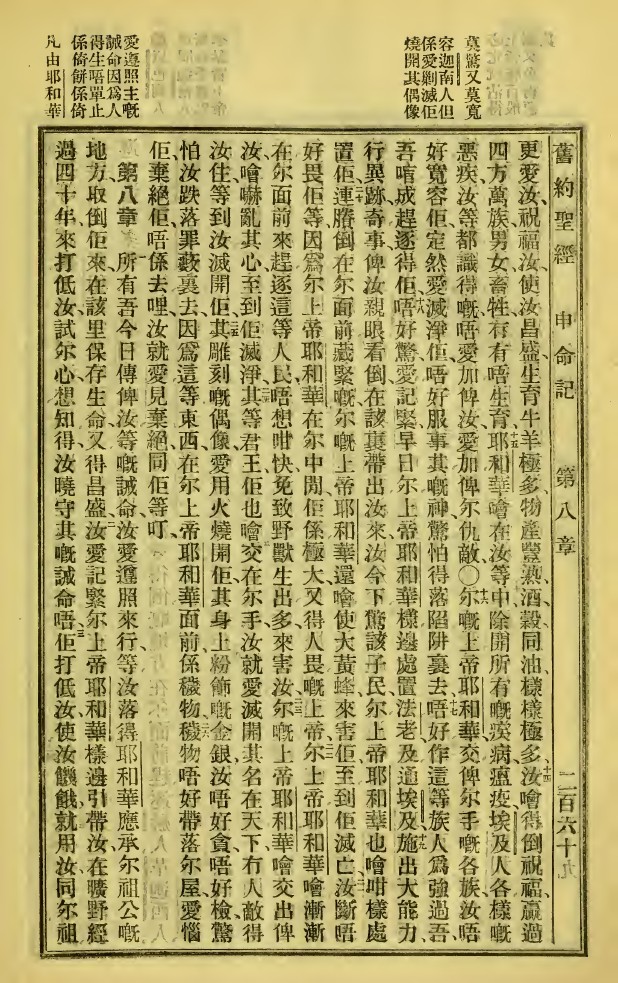 莫驚又莫寬
容迦南人但
係愛剿滅佢
燒開其偶像
愛遵照主嘅
誡命因爲人
得生唔單止
係倚餅係倚
凡由耶和華
舊約聖經 申命記 第八章 二百六十九
更愛汝、祝福汝、使汝昌盛生育、牛羊極多、物產豐熟、酒穀同油樣樣極多、十四汝噲得倒祝福贏過
四方萬族、男女畜牲冇有唔生育、十五耶和華噲在汝等中、除開所有嘅疾病瘟疫、埃及人各樣嘅
惡疾、汝等都識得嘅、唔愛加俾汝、愛加俾尔仇敵、〇十六尔嘅上帝耶和華交俾尔手嘅各族、汝唔
好寬容佢、定然愛滅淨佢、唔好服事其嘅神、驚怕得落陷阱裏去、十七唔好作這等族人爲強過吾、
吾唷成趕逐得佢、十八唔好驚、愛記緊早日尔上帝耶和華樣邊處置法老及通埃及、十九施出大能力、
行異跡奇事、俾汝親眼看倒、在該裏帶出汝來、汝今下驚該子民、尔上帝耶和華也噲咁樣處
置佢、二十連膌倒在尔面前藏緊嘅、尔嘅上帝耶和華還噲使大黃蜂來害佢、至到佢滅亡、汝斷唔
好畏佢等、因爲尔上帝耶和華在尔中間、佢係極大又得人畏嘅上帝、二二尔上帝耶和華噲漸漸
在尔面前來趕逐這等人民、唔想咁快、免致野獸生出多來害汝、二三尔嘅上帝耶和華噲交出俾
汝、噲嚇亂其心、至到佢滅淨、二四其等君王佢也噲交在尔手、汝就愛滅開其名在天下、冇人敵得
汝住、等到汝滅開佢、二五其雕刻嘅偶像、愛用火燒開佢、其身上粉飾嘅金銀、汝唔好貪、唔好檢、驚
怕汝跌落罪藪裏去、因爲這等東西、在尔上帝耶和華面前係穢物、二六穢物唔好帶落尔屋、愛惱
佢棄絕佢、唔係去哩、汝就愛見棄絕同佢等叮、
第八章 一所有吾今日傳俾汝等嘅誡命、汝愛遵照來行、等汝落得耶和華應承尔祖公嘅
地方、取倒佢來在該里保存生命、又得昌盛、二汝愛記緊尔上帝耶和華樣邊引帶汝在曠野、經
過四十年來打低汝、試尔心、想知得汝曉守其嘅誡命唔、三佢打低汝、使汝饑餓、就用汝同尔祖